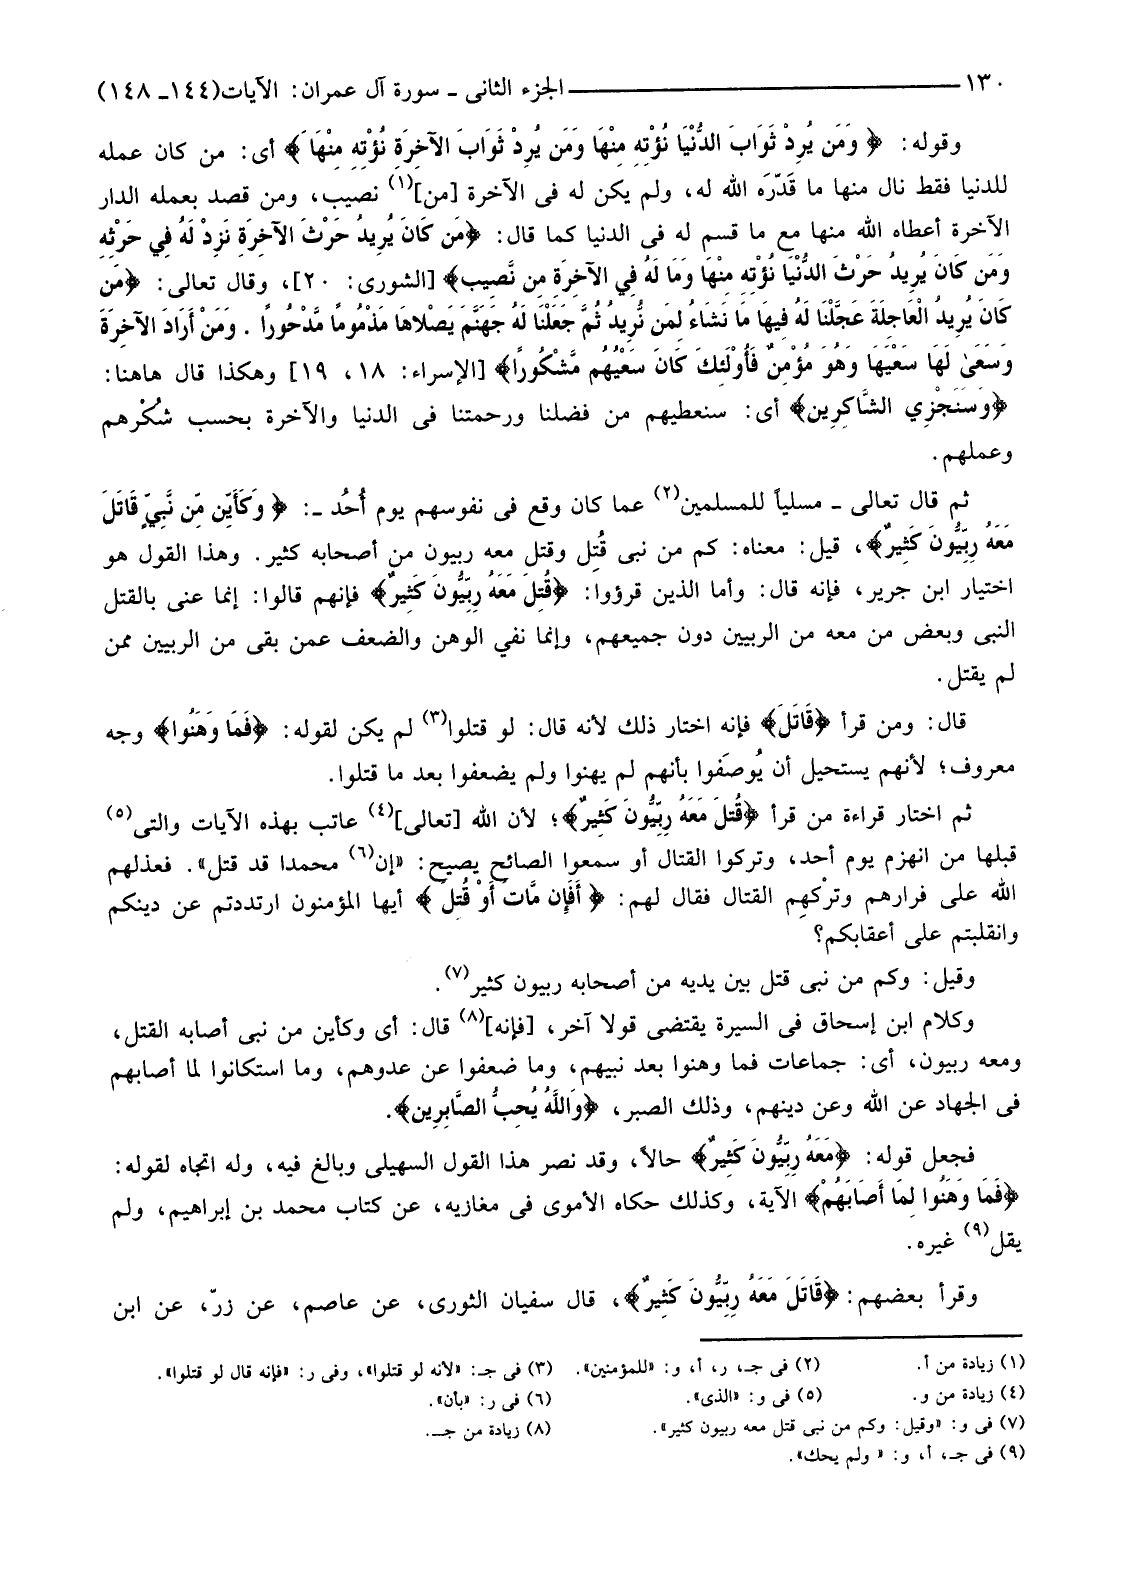 ١٣٠ ــــــــــــــــ الجزء الثانى ـ سورة آل عمران: الآيات(١٤٤ـ ١٤٨)
وقوله: ﴿ وَمَن يُرِدْ ثَوَابَ الدُّنْيَا نُؤْتِهِ مِنْهَا وَمَن يُرِدْ ثَوَابَ الآخِرَةِ نُؤْتِهِ مِنْهَا ﴾ أى: من كان عمله
للدنيا فقط نال منها ما قَدّرَه الله له، ولم يكن له فى الآخرة [من](١) نصيب، ومن قصد بعمله الدار
الآخرة أعطاه الله منها مع ما قسم له فى الدنيا كما قال: ﴿مَن كَانَ يُرِيدُ حَرْثَ الآخِرَةِ نَزِدْ لَهُ فِي حَرْثِهِ
وَمَن كَانَ يُرِيدُ حَرْثَ الدُّنْيَا نُؤْتِهِ مِنْهَا وَمَا لَهُ فِي الآخِرَةِ مِن نَّصِيبٍ﴾ [الشورى: ٢٠]، وقال تعالى: ﴿مَن
كَانَ يُرِيدُ الْعَاجِلَةَ عَجَّلْنَا لَهُ فِيهَا مَا نَشَاءُ لِمَن نُّرِيدُ ثُمَّ جَعَلْنَا لَهُ جَهَنَّمَ يَصْلاهَا مَذْمُوماً مَّدْحُوراً . وَمَنْ أَرَادَ الآخِرَةَ
وَسَعَىٰ لَهَا سَعْيَهَا وَهُوَ مُؤْمِنٌ فَأُوْلَئِكَ كَانَ سَعْيُهُم مَّشْكُورًا﴾ [الإسراء: ١٨، ١٩] وهكذا قال هاهنا:
﴿وَسَنَجْزِي الشَّاكِرِين﴾ أى: سنعطيهم من فضلنا ورحمتنا فى الدنيا والآخرة بحسب شُكْرهم
وعملهم.
ثم قال تعالى ـ مسلياً للمسلمين(٢) عما كان وقع فى نفوسهم يوم أُحُد ـ: ﴿ وَكَأَيِّن مِّن نَّبِيٍّ قَاتَلَ
مَعَهُ رِبِّيُّونَ كَثِيرٌ﴾، قيل: معناه: كم من نبى قُتِل وقتل معه ربيون من أصحابه كثير. وهذا القول هو
اختيار ابن جرير، فإنه قال: وأما الذين قرؤوا: ﴿قُتِلَ مَعَهُ رِبِّيُّونَ كَثِيرٌ﴾ فإنهم قالوا: إنما عنى بالقتل
النبى وبعض من معه من الربيين دون جميعهم، وإنما نفي الوهن والضعف عمن بقى من الربيين ممن
لم يقتل.
قال: ومن قرأ ﴿قَاتَلَ﴾ فإنه اختار ذلك لأنه قال: لو قتلوا(٣) لم يكن لقوله: ﴿فَمَا وَهَنُوا﴾ وجه
معروف؛ لأنهم يستحيل أن يُوصَفوا بأنهم لم يهنوا ولم يضعفوا بعد ما قتلوا.
ثم اختار قراءة من قرأ ﴿قُتِلَ مَعَهُ رِبِّيُّونَ كَثِيرٌ﴾؛ لأن الله [تعالى](٤) عاتب بهذه الآيات والتى(٥)
قبلها من انهزم يوم أحد، وتركوا القتال أو سمعوا الصائح يصيح: «إن(٦) محمدا قد قتل». فعذلهم
الله على فرارهم وتركهم القتال فقال لهم: ﴿ أَفَإِن مَّاتَ أَوْ قُتِلَ ﴾ أيها المؤمنون ارتددتم عن دينكم
وانقلبتم على أعقابكم؟
وقيل: وكم من نبى قتل بين يديه من أصحابه ربيون كثير(٧).
وكلام ابن إسحاق فى السيرة يقتضى قولا آخر، [فإنه](٨) قال: أى وكأين من نبى أصابه القتل،
ومعه ربيون، أى: جماعات فما وهنوا بعد نبيهم، وما ضعفوا عن عدوهم، وما استكانوا لما أصابهم
فى الجهاد عن الله وعن دينهم، وذلك الصبر، ﴿وَاللَّهُ يُحِبُّ الصَّابِرِين﴾.
فجعل قوله: ﴿مَعَهُ رِبِّيُّونَ كَثِيرٌ﴾ حالاً، وقد نصر هذا القول السهيلى وبالغ فيه، وله اتجاه لقوله:
﴿فَمَا وَهَنُوا لِمَا أَصَابَهُمْ﴾ الآية، وكذلك حكاه الأموى فى مغازيه، عن كتاب محمد بن إبراهيم، ولم
يقل(٩) غيره.
وقرأ بعضهم: ﴿قَاتَلَ مَعَهُ رِبِّيُّونَ كَثِيرٌ﴾، قال سفيان الثورى، عن عاصم، عن زرّ، عن ابن
(١) زيادة من أ. (٢) فى جـ، ر، أ، و: «للمؤمنين». (٣) فى جـ: «لأنه لو قتلوا»، وفى ر: «فإنه قال لو قتلوا».
(٤) زيادة من و. (٥) فى و: «الذى». (٦) فى ر: «بأن».
(٧) فى و: «وقيل: وكم من نبى قتل معه ربيون كثير». (٨) زيادة من جـ.
(٩) فى جـ، أ، و: « ولم يحك».